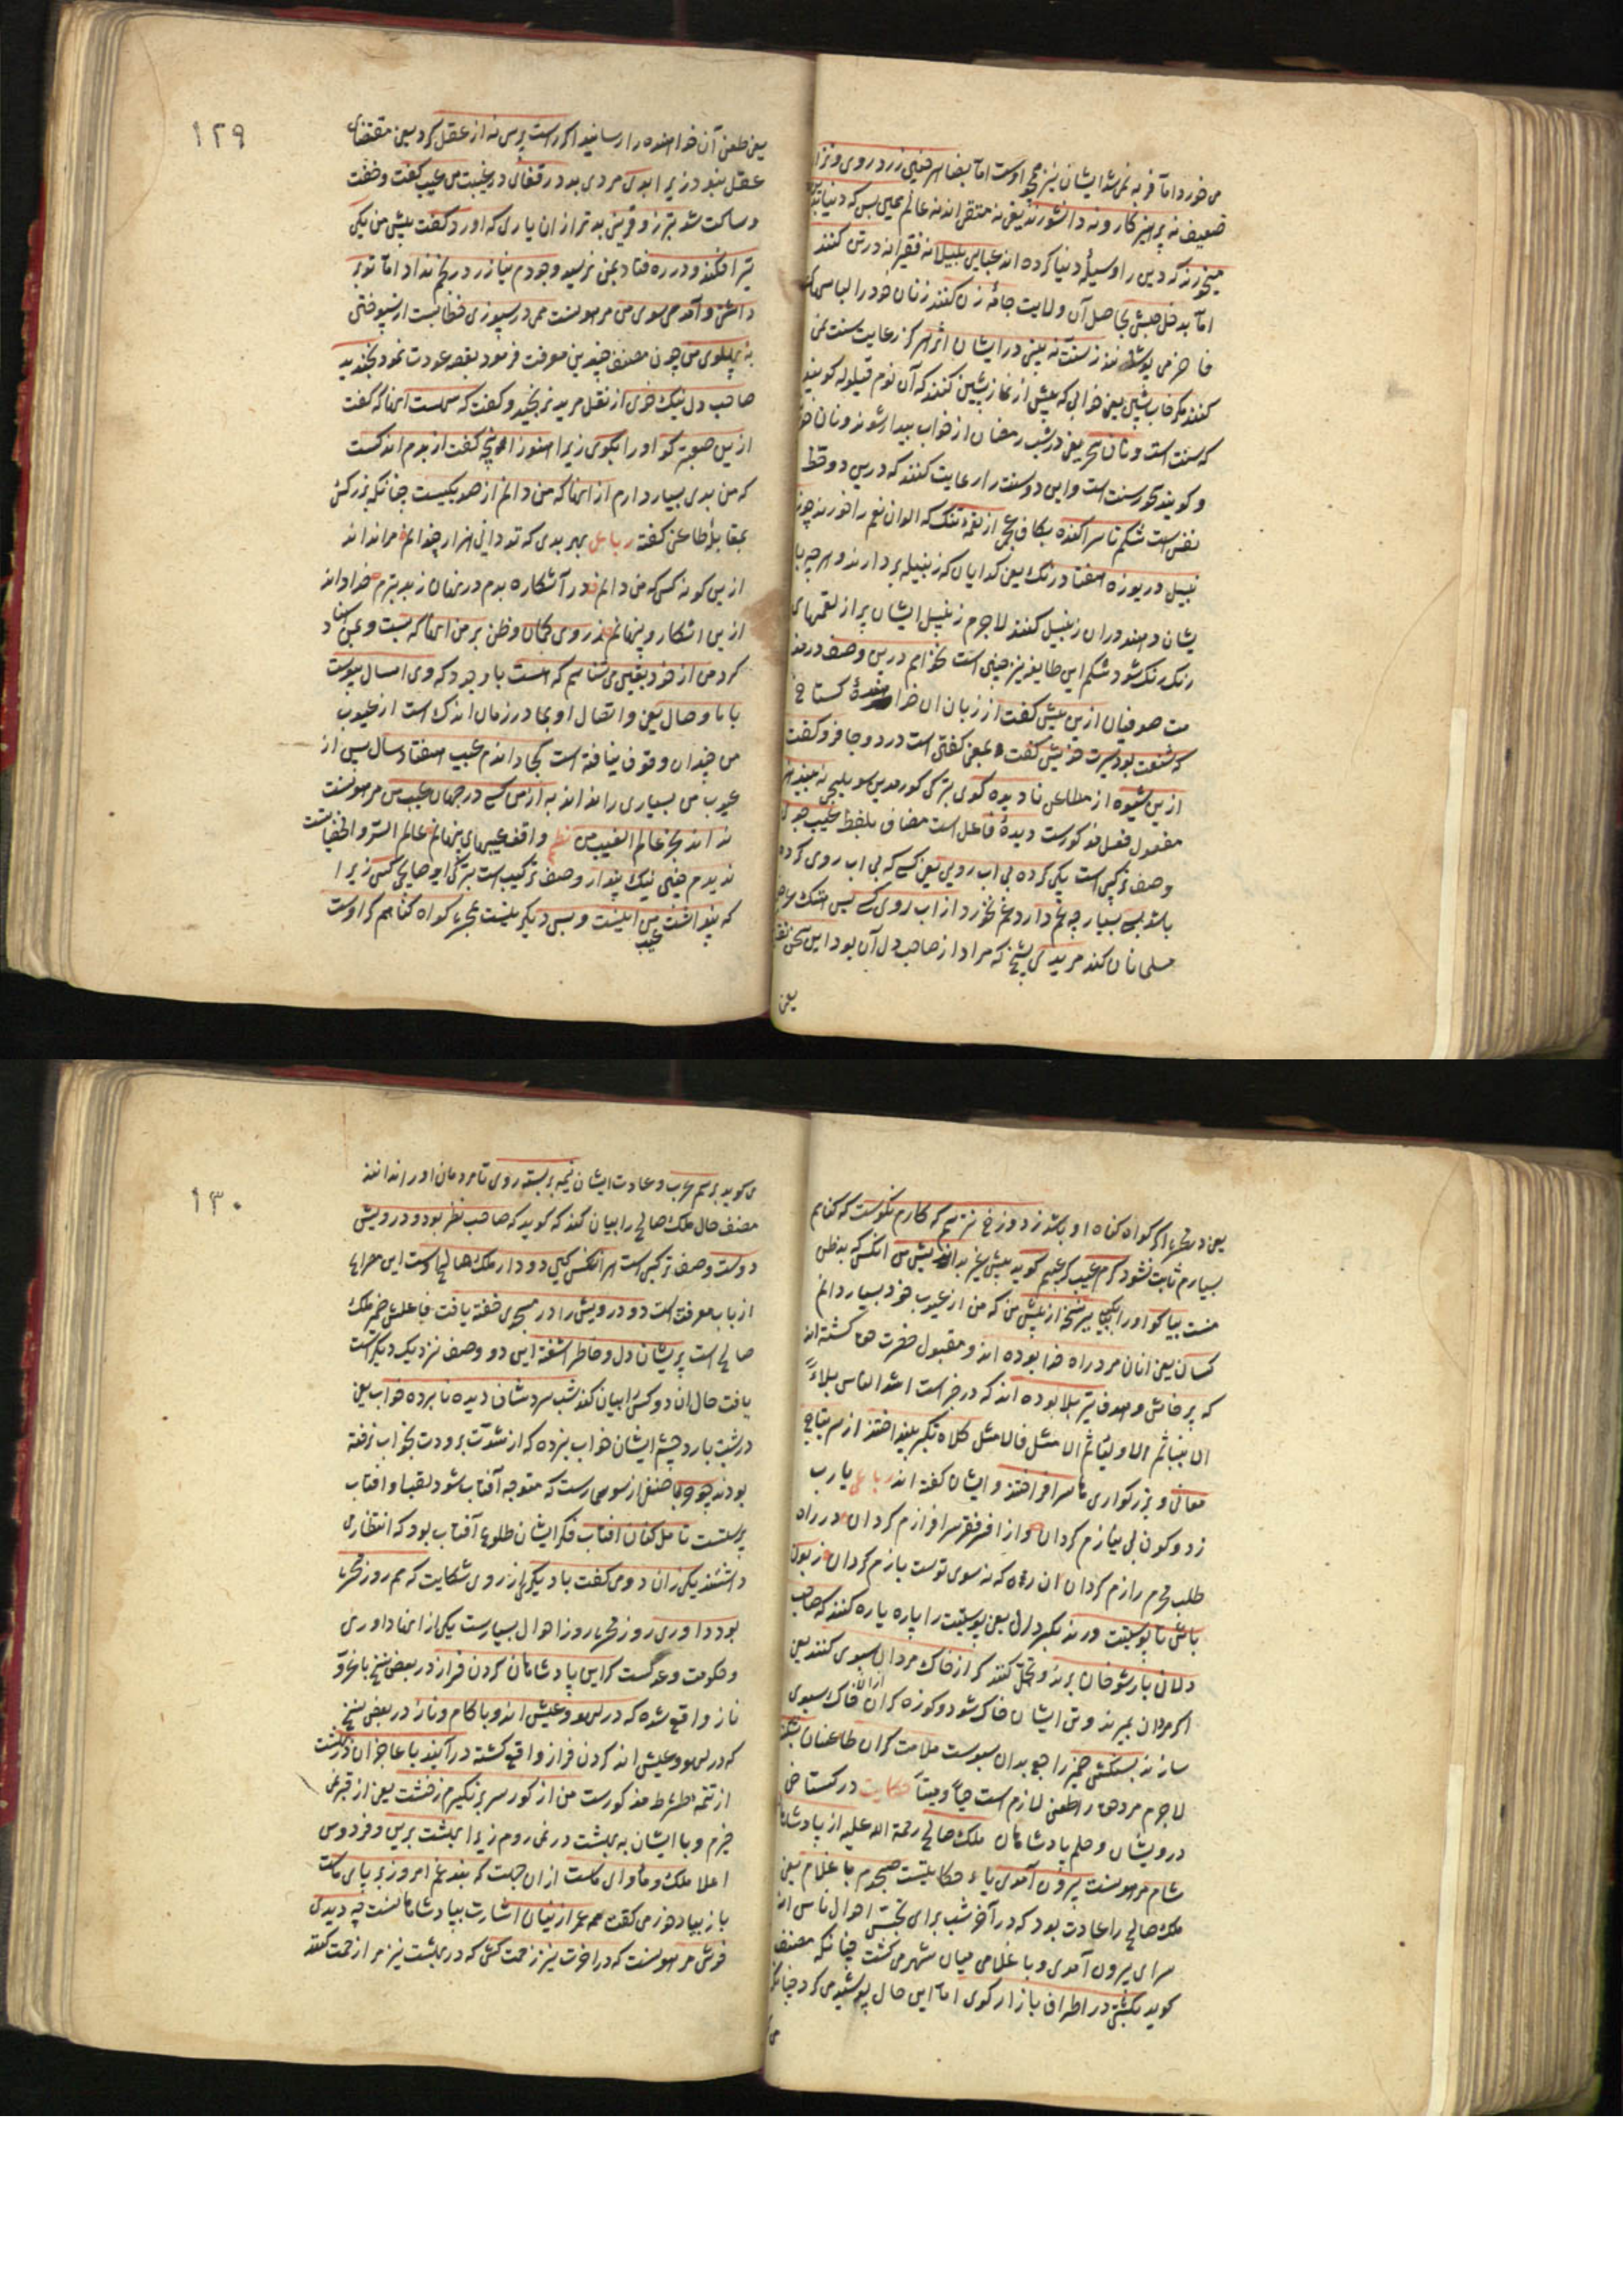 می خورد اما فربه نمی شد ایشان نیز همچو اوست اما بظاهر چنین زرد روی و نزار
ضعیف نه پرهیزکار و نه دانشورند یعنی نه متقی اند نه عالم همین بس که دنیا بدین
میخورند که دین را وسیلهٔ دنیا کرده اند عبایی بلیلانه فقیرانه در تن کنند
اما بدخل حبش بحاصل آن ولایت جامهٔ زن کنند زنان خود را لباس
فاخر می پوشانند ز سنت نه بینی در ایشان اثر هرگز رعایت سنت نمی
کنند مگر خواب پیشین یعنی خوابی که پیش از نماز پیشین کنند که آن نوم قیلوله گویند
که سنت است و نان سحر یعنی در شب رمضان از خواب بیدار شوند و نان خورند
و گویند سحور سنت است و این دو سنت را رعایت کنند که درین دو حظ
نفس است شکم تا سر آکنده بکاف عجمی از لقمه تنک که الوان نعم را خورند چون
نبیل دریوزه هفتاد رنک یعنی کدایان که زنبیله بر دارند و هر چه با
یشان دهند در ان زنبیل کنند لاجرم زنبیل ایشان پر از لقمهای
رنک رنک شود شکم این طایفه نیز چنین است نخواهم درین وصف در مذ
مت صوفیان ازین پیش کفت از زبان ان خواهنده کستاخ
که شنعت بود سیرت خویش کفت بمعنی کفتی است درد و جا فرو کفت
ازین شیوه از مطاعن نادیده کوی بترکی کورمدین سویلیجی نه بیند هنر
مفعول فعل مذکورست دیدهٔ فاعل است مضاف بلفظ عیب جوی
وصف ترکیبی است یکی کرده بی اب رویی یعنی کسی که بی اب روی کرده
باشد بسی بسیار چه غم دارد غم نخورد از اب روی کسی پس هتک عرض
مسلمانان کند مریدی بشیخ که مراد از صاحب دل آن بود این سخن نقل
یعنی
۱۲۹
یعنی طعن آن خواهنده را رسانید اکر راست پرسی نه از عقل کرد یعنی مقتضای
عقل نبود زیرا بدی مردی بد در قفای در غیبت من عیب کفت و خفت
و ساکت شد بترزو قرینی بدتر از ان یاری که اورد کفت پیش من یکی
تیر افکند و در ره فتاد بمن نرسید وجودم نیازرد رنجم نداد اما تو بر
داشتی و آمدی سوی من مرهونست همی در سپوزی خطابست از سپوختن
به پهلوی من چون مصنف چندین معرفت فرمود بقصه عودت نمود بخندید
صاحب دل نیک خوی از نقل مرید نرنجید و کفت که سهلست اینها که کفت
ازین صعبتر کو اورا بکوی زیرا هنوز انچه کفت از بدم اندکست
که من بدی بسیار دارم از اینها که من دانم از صد یکیست چنانکه بزرکی
بمقابلهٔ طاعن کفته رباعی بهر بدی که تو دانی هزار چندانم مرا نداند
ازین کونه کس که من دانم در آشکاره بدم در نهان ز بد بترم خدا داند
ازین اشکار و پنهانم ز روی کمان و ظن بر من اینها که بست و عیب اسناد
کرد من از خود یقین می شناسم که هست با وجود که وی امسال پیوست
با ما وصال یعنی و اتصال او بما در زمان اندک است از عیوب
من چندان وقوف نیافته است کجا داندم عیب هفتاد سال پس از
عیوب من بسیاری را نداند به از من کسی در جهان عیب من مرهونست
نداند بجز عالم الغیب من نظم واقف عیبهای پنهانم عالم السر و الخفیاتست
ندیدم چنین نیک پندار وصف ترکیبست بترکی ایو صایجی کس زیرا
که پنداشت من اینست و بس دیکر نیست بمحشر کواه کناهم کر اوست
عیب
یعنی در محشر اکر کواه کناه او باشد ز دوزخ نترسم که کارم نکوست که کناهم
بسیارم ثابت نشود کرم عیب کر عیبم کوید پیش غیر بداندیش من انکس که بدظن
منست بیا کو اورا بکیر نسخه از پیش من که من از عیوب خود بسیار دانم
کسان یعنی انان مرد راه خدا بوده اند و مقبول حضرت حق کشته اند
که پرخاش و هدف تیر بلا بوده اند که در خبر است اشد الناس بلاءً
الانبیاء ثم الاولیاء ثم الامثل فالامثل کلاه تکبر بینداختند از سر بتاج
معانی و بزرکواری تا سر افراختند و ایشان کفته اند رباعی یا رب
ز دو کون بی نیازم کردان و از افسر فقر سرافرازم کردان در راه
طلب محرم رازم کردان ان ره که نه سوی توست بازم کردان زبون
باش تا پوستینت درند بکسر دال یعنی پوستینت را پاره پاره کنند که صاحب
دلان بار شوخان برند و تحمل کنند کر از خاک مردان سبوی کنند یعنی
اکر مردان بمیرند و تن ایشان خاک شود و کوزه کر از ان خاک سبوی
سازند بسنکش ضمیر راجع بدان سبوست ملامت کران طاعنان شکنند
لاجرم مرد حق را طعن لازم است حیاً و میتاً حکایت در کستاخی
درویشان و حلم پادشاهان ملک صالح رحمة الله علیه از پادشاهان
شام مرهونست بیرون آمدی یاء حکایتیست صبحدم با غلام یعنی
ملک صالح را عادت بود که در آخر شب برای تجسس احوال ناس از
سرای بیرون آمدی و با غلامی میان شهر می کشت چنانکه مصنف
کوید بکشتی در اطراف بازار کوی اما این حال پوشیده می کرد چنانکه
می
۱۳۰
می کوید برسم عرب و عادت ایشان نیمه بر بسته روی تا مردمان اورا ندانند
مصنف حال ملک صالح را بیان کند که کوید که صاحب نظر بود و درویش
دوست وصف ترکیبی است هر انکس کین دو دارد ملک صالح اوست این مصراع
از باب معرفت است دو درویش را در مسجدی خفته یافت فاعلش ضمیر ملک
صالح است پریشان دل و خاطر اشفته این دو وصف نزدیک دیکرست
یافت حال ان دو کس را بیان کند شب سردشان دیده نابرده خواب یعنی
در شب بارد چشم ایشان خواب نبرده که از شدت برودت بخواب نرفته
بودند چو حربا صنفی از سوسمارست که متوجه آفتاب شود لقبا و افتاب
پرستست تامل کنان افتاب فکر ایشان طلوع آفتاب بود که انتظاری
داشتند یکی زان دو می کفت با دیکری از روی شکایت که هم روز محشر
بود داوری روز محشر روز اهوال بسیارست یکی از انها داوری
و حکومت و عدلست کر این پادشاهان کردن فراز در بعض نسخ با عز و
ناز واقع شده که در لهو و عیش اند و با کام و ناز در بعض نسخ
که در لهو و عیش اند کردن فراز واقع کشته در آیند با عاجزان در بهشت
از تتمهٔ شرط مذکورست من از کور سر بر نکیرم ز خشت یعنی از قبر نمی
خیزم و با ایشان به بهشت در نمی روم زیرا بهشت برین و فردوس
اعلا ملک و ماوای ماست ازان جهت که بند غم امروز بر پای ماست
باز بیاد خود می کفت همه عمر از اینان اشارت بپادشاهانست چه دیدی
خوشی مرهونست که در اخرت نیز زحمت کشی که در بهشت نیز مرا زحمت کنند